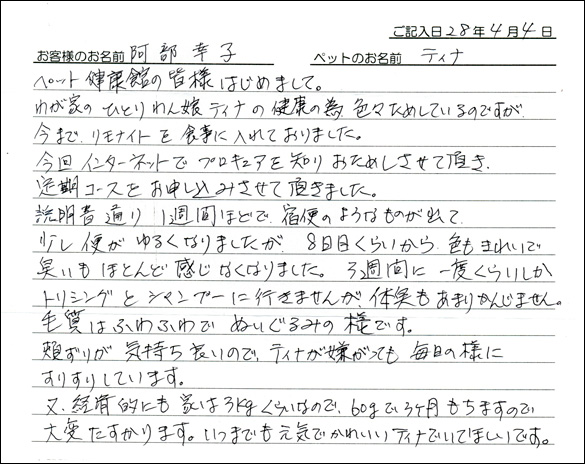 ご記入日 28年4月4日
お客様のお名前 阿部幸子 ペットのお名前 ティナ
ペット健康館の皆様はじめまして。
わが家のひとりわん娘ティナの健康の為色々ためしているのですが
今まで、リモナイトを食事に入れておりました。
今回インターネットでプロキュアを知りおためしさせて頂き、
定期コースをお申し込みさせて頂きました。
説明書通り1週間ほどで、宿便のようなものが出て
少し便がゆるくなりましたが、8日目くらいから、色もきれいで
臭いもほとんど感じなくなりました。3週間に一度くらいしか
トリミングとシャンプーに行きませんが、体臭もあまりかんじません。
毛質はふわふわでぬいぐるみの様です。
頬ずりが気持ち良いので、ティナが嫌がっても毎日の様に
すりすりしています。
又、経済的にも家は3kgくらいなので、60gで3ヶ月もちますので
大変たすかります。いつまでも元気でかわいいティナでいてほしいです。